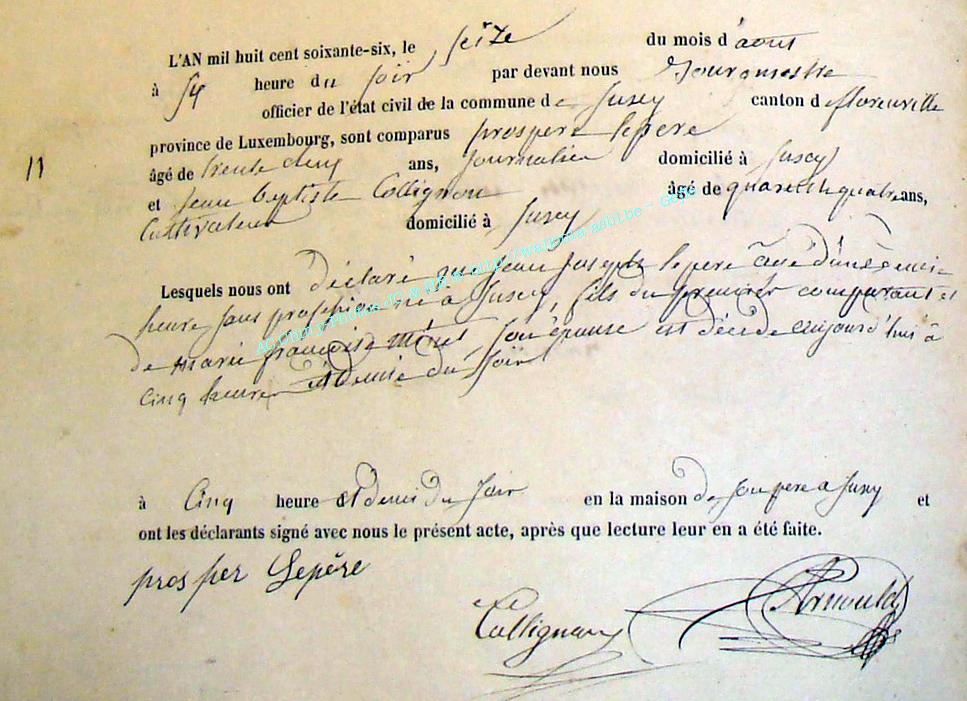 L'AN mil huit cent soixante-six, le seize du mois d'aout
à six heure du soir par devant nous Bourgmestre
officier de l'état civil de la commune de Jusey canton de florenville
province de Luxembourg, sont comparus prospere lepere
11
âgé de trente cinq ans, journalier domicilié à Jusey
et jean baptiste Collignon âgé de quarante quatre ans,
Cultivateur domicilié à Jusey
Lesquels nous ont déclaré que Jean Joseph lepere agé d'une demie
heure sans profession né à Jusey, fils du premier comparant et
de marie françoise son épouse est décédé aujourd'hui à
cinq heures et demie du soir
à Cinq heure et demi du soir en la maison de son pere a Jusey et
ont les déclarants signé avec nous le présent acte, après que lecture leur en a été faite.
prosper Lepère
Collignon
Arnould